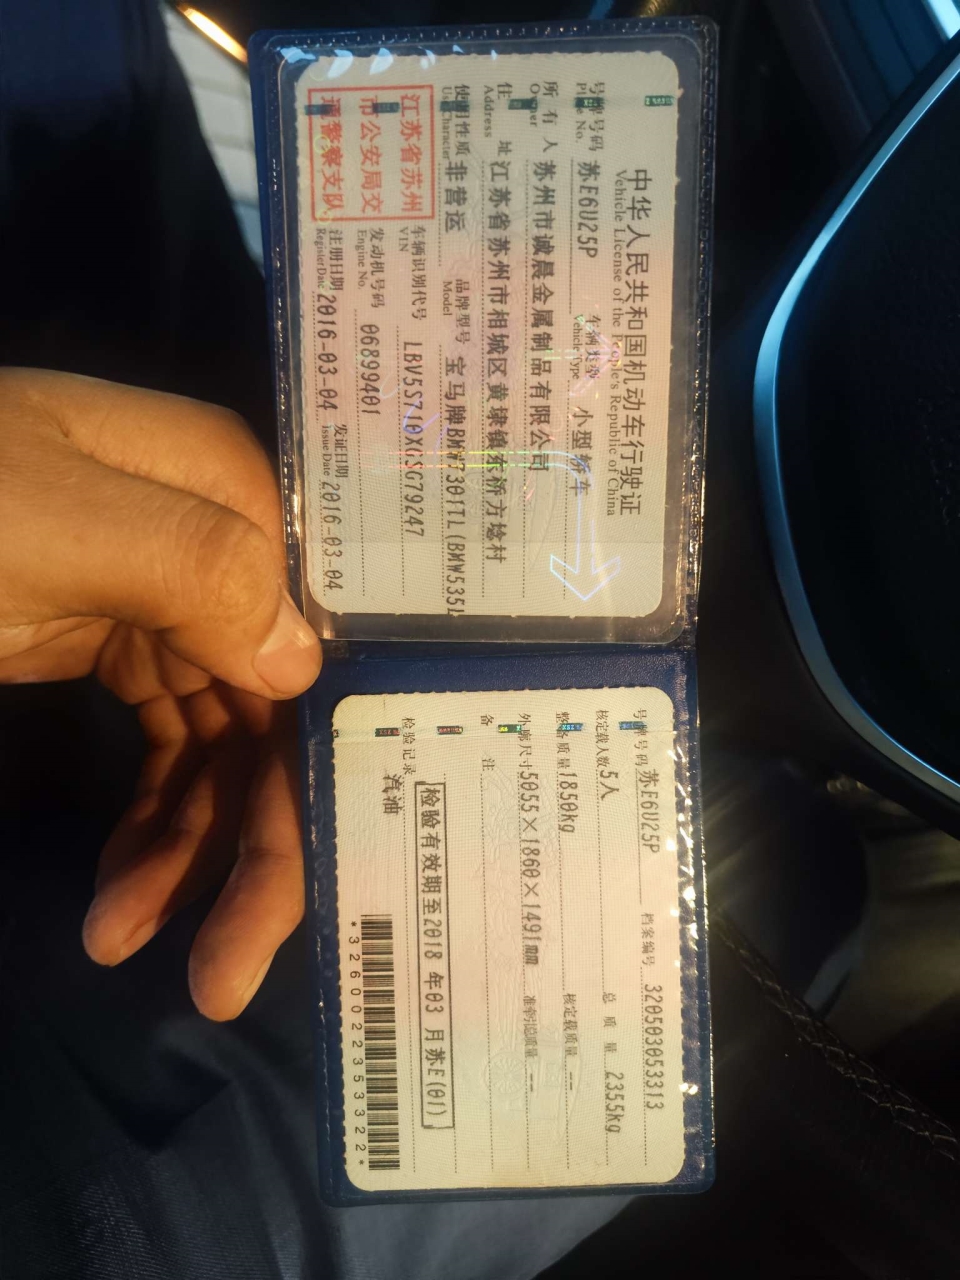 中华人民共和国机动车行驶证
Vehicle License of the People's Republic of China
号牌号码 苏E6U25P 车辆类型 小型轿车
Plate No. Vehicle Type
所有人 苏州市诚晨金属制品有限公司
Owner
住址 江苏省苏州市相城区黄埭镇东桥方埝村
Address
使用性质 非营运 品牌型号 宝马牌BMW7301TL(BMW535L
Use Character Model
江苏省苏州
市公安局交
通警察支队
车辆识别代号 LBV5S710XGSG79247
VIN
发动机号码 06899401
Engine No.
注册日期 2016-03-04 发证日期 2016-03-04
Register Date Issue Date
号牌号码 苏E6U25P 档案编号 320503053313
核定载人数 5人 总质量 2355kg
整备质量 1850kg 核定载质量 --
外廓尺寸 5055×1860×1491mm 准牵引总质量 --
备注
检验有效期至2018年03月苏E(01)
检验记录
汽油
*3260022353322*